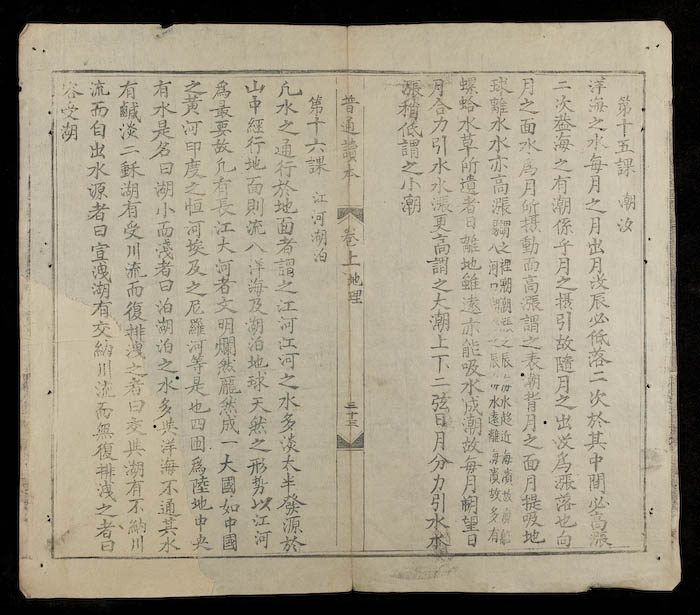 第十五課 潮汐
洋海之水每月之月出月沒辰必低落二次於其中間必高漲
二次蓋海之有潮係乎月之摄引故隨月之出沒爲漲落也向
月之面水爲月所摄動而高漲謂之表潮背月之面月提吸地
球離水水亦高漲謂之裡潮潮漲之辰海水趁近海濱故商船
潮落之辰海水遠離海濱故多有
螺蛤水草所遺者日離地雖遠亦能吸水成潮故每月朔望日
月合力引水水漲更高謂之大潮上下二弦日月分力引水水
漲稍低謂之小潮
普通讀本 卷上 地理 三十三
第十六課 江河湖泊
凢水之通行於地面者謂之江河江河之水多淡太半發源於
山中經行地面則流入洋海及湖泊地球天然之形勢以江河
爲最要故凢有長江大河者文明爛然厖然成一大國如中國
之黄河印度之恒河埃及之尼羅河等是也四囬爲陸地中央
有水是名曰湖小而淺者曰泊湖泊之水多與洋海不通其水
有鹹淡二種湖有受川流而復排洩之者曰交與湖有不納川
流而自出水源者曰宣洩湖有交納川流而無復排洩之者曰
容受湖